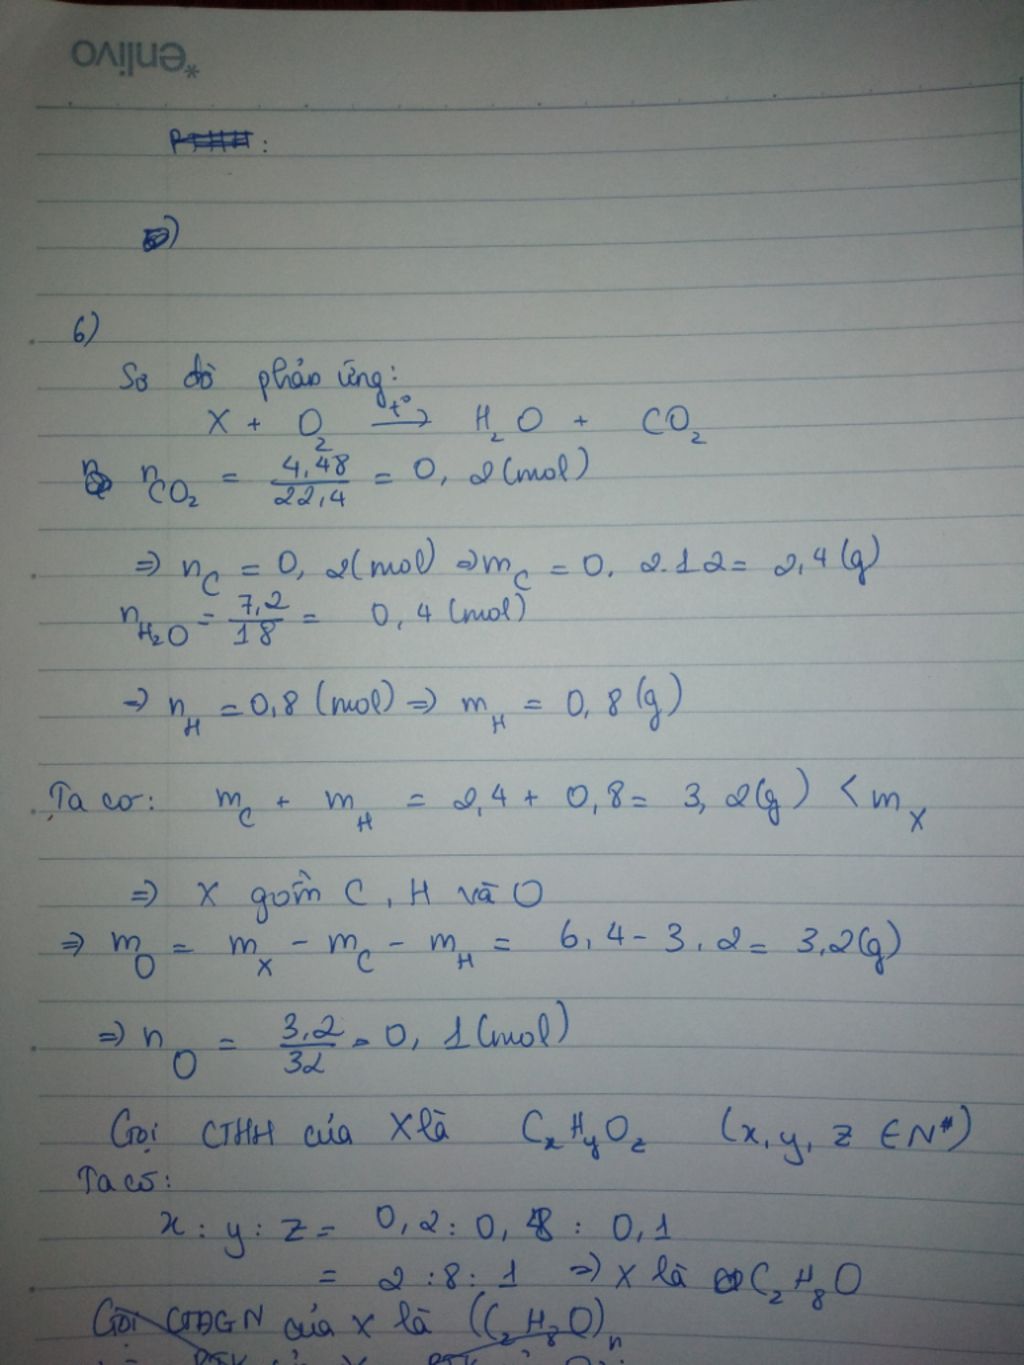 *enlivo
PTHH:
5)
6)
Sơ đồ phản ứng:
X + O₂ —t°→ H₂O + CO₂
n_CO₂ = 4,48/22,4 = 0,2(mol)
⇒ n_C = 0,2(mol) ⇒ m_C = 0,2.12 = 2,4(g)
n_H₂O = 7,2/18 = 0,4(mol)
⇒ n_H = 0,8(mol) ⇒ m_H = 0,8(g)
Ta có: m_C + m_H = 2,4 + 0,8 = 3,2(g) < m_X
⇒ X gồm C, H và O
⇒ m_O = m_X - m_C - m_H = 6,4 - 3,2 = 3,2(g)
⇒ n_O = 3,2/32 = 0,1(mol)
Gọi CTHH của X là CₓHᵧO_z (x, y, z ∈ N*)
Ta có:
x : y : z = 0,2 : 0,8 : 0,1
= 2 : 8 : 1 ⇒ X là C₂H₈O
Gọi CTĐGN của X là (C₂H₈O)ₙ